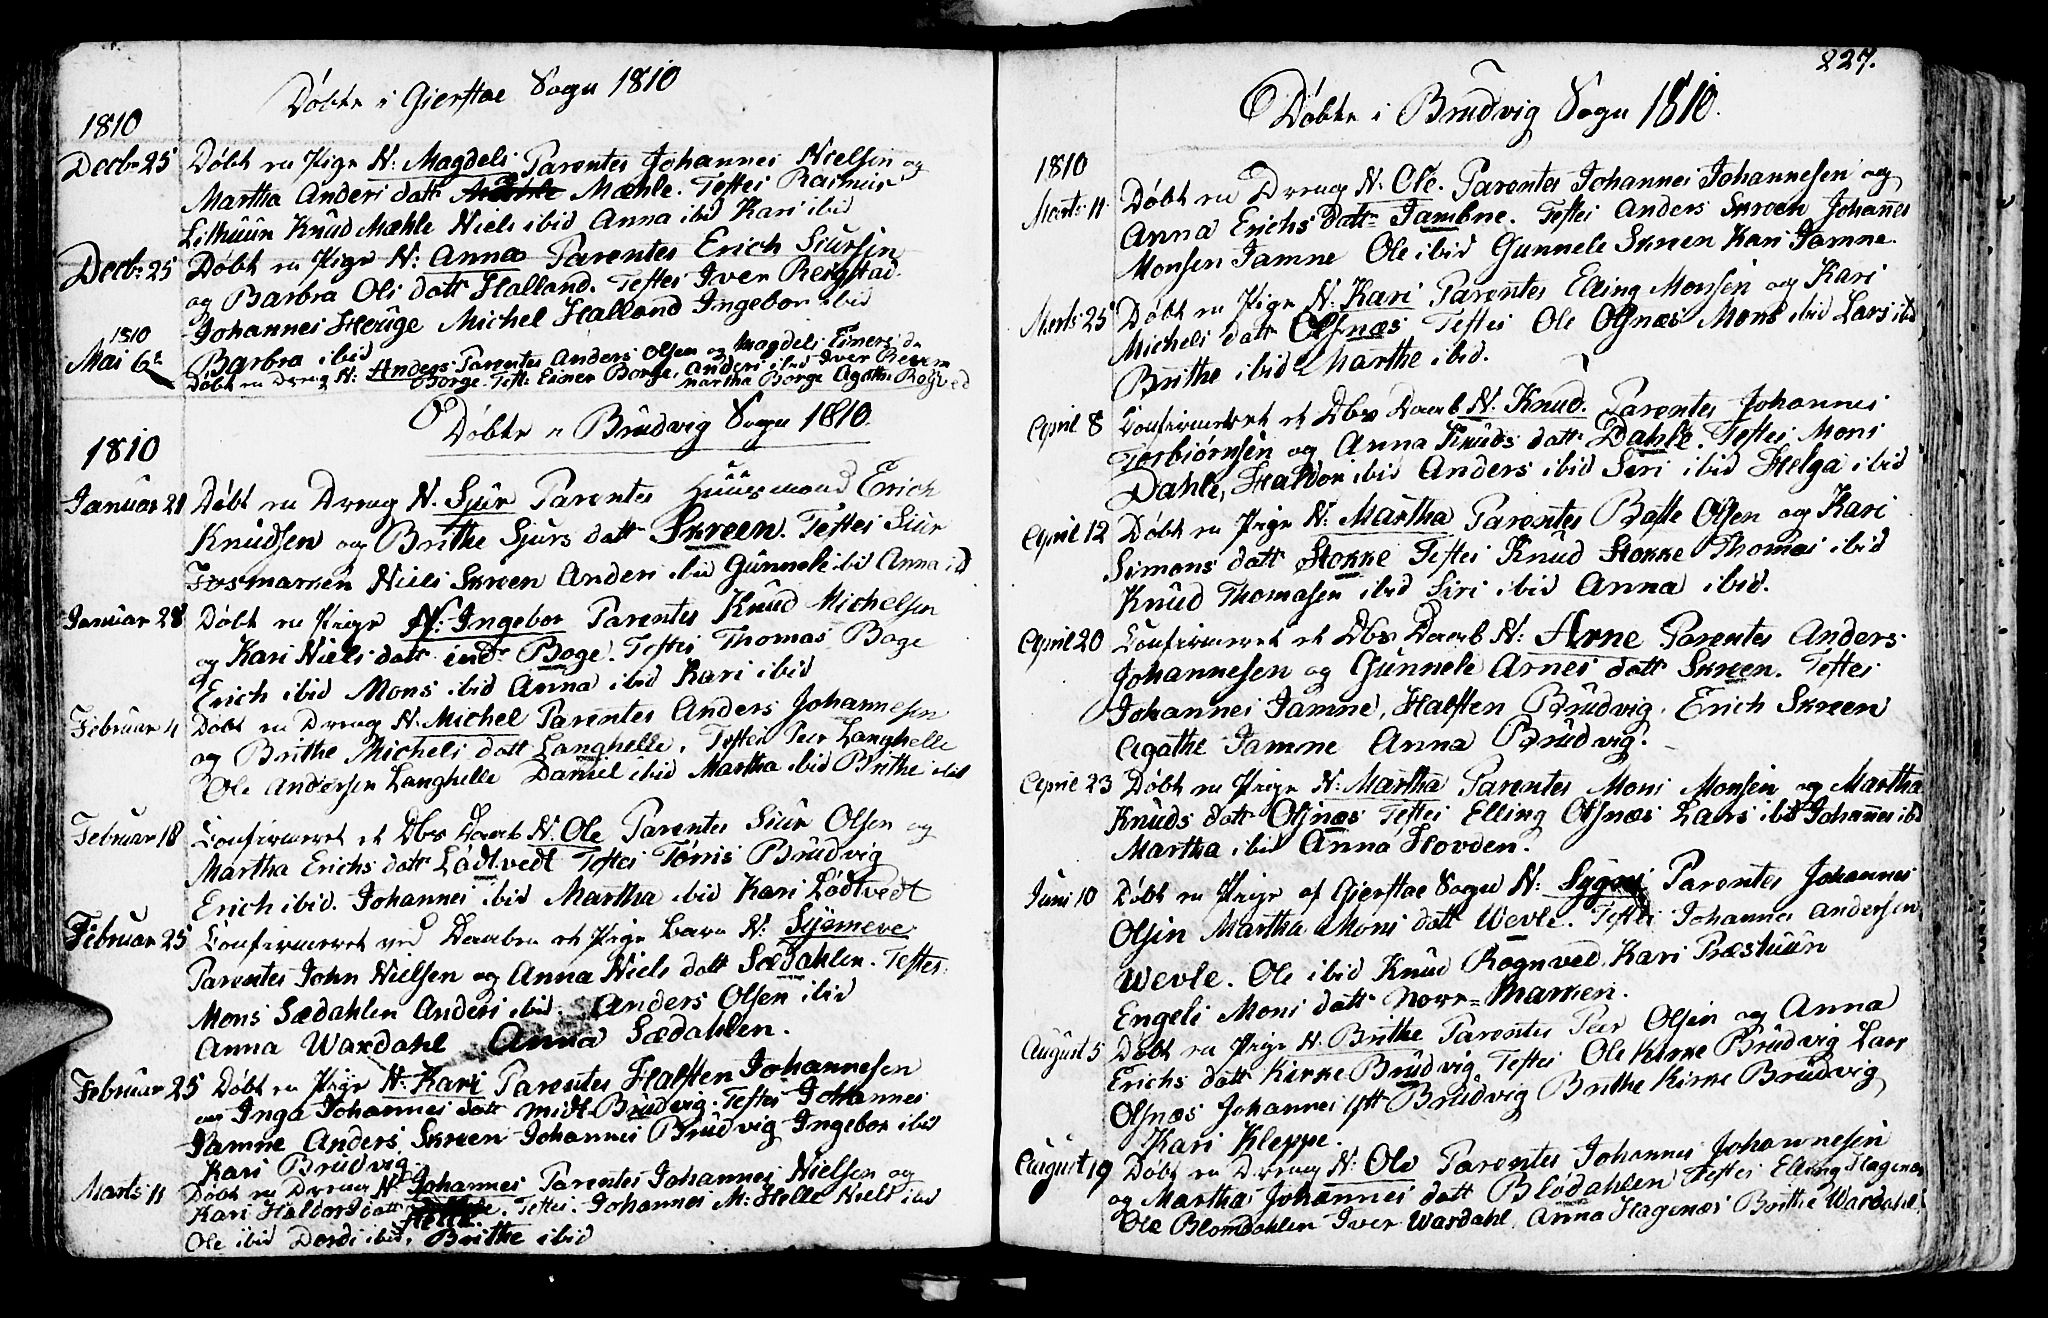 Døbte i Gierstae Sogn 1810
1810
Decbr 25 Døbt en Pige N: Magdeli Parentes Johannes Nielsen og
Martha Anders datt Mæhle. Testes Rasmus
Lilhuun Knud Mæhle Niels ibid Anna ibid Kari ibid
Decbr 25 Døbt en Pige N: Anna Parentes Erich Siursen
og Barbra Ols datt Halland. Testes Iver Reigstad
Johannes Houge Michel Halland Ingebor ibid
Barbra ibid
1810
Mai 6te Døbt en Dreng N: Anders Parentes Anders Olsen og Magdeli Einers d.
Borge. Test: Einer Borge, Anders ibid Iver
Martha Borge Agatha Rogved
Døbte i Brudvig Sogn 1810.
1810
Januar 21 Døbt en Dreng N. Sjur Parentes Huusmand Erich
Knudsen og Brithe Sjurs datt Skreen. Testes Siur
Fosmarken Niels Skreen Anders ibid Gunnele ibid Anna ibd
Januar 28 Døbt en Pige N: Ingebor Parentes Knud Michelsen
og Kari Niels datt indr Boge. Testes Thomas Boge
Erich ibid Mons ibid Anna ibid Kari ibid
Februar 4 Døbt en Dreng N. Michel Parentes Anders Johannesen
og Brithe Michels datt Langhelle. Testes Peer Langhelle
Ole Andersen Langhelle Daniel ibid Martha ibid Brithe ibid
Februar 18 Confirmeret et Dbs Daab N. Ole Parentes Siur Olsen og
Martha Erichs datt Lødtvedt Testes Tønis Brudvig
Erich ibid. Johannes ibid Martha ibid Kari Lødtvedt
Februar 25 Confirmeret ved Daaben et Pige barn N: Synneve
Parentes John Nielsen og Anna Niels datt Sædahlen. Testes
Mons Sædahlen Anders ibid. Anders Olsen ibid
Anna Waxdahl Anna Sædahlen.
Februar 25 Døbt en Pige N: Kari Parentes Halsten Johannesen
og Inga Johannes datt Midt-Brudvig. Testes Johannes
Jamne Anders Skreen Johannes Brudvig Ingebor ibid
Kari Brudvig
Marts 11 Døbt en Dreng N. Johannes Parentes Johannes Nielsen og
Kari Haldors datt Helle. Testes. Johannes M: Helle Niels ibid
Ole ibid Dordi ibid, Brithe ibid
227.
Døbte i Brudvig Sogn 1810.
1810
Marts 11 Døbt en Dreng N. Ole. Parentes Johannes Johannesen og
Anna Erichs datt Jambne. Testes Anders Skreen Johannes
Monsen Jamne Ole ibid Gunnele Skreen Kari Jamne.
Marts 25 Døbt en Pige N. Kari Parentes Elling Monsen og Kari
Michels datt Olsnæs Testes Ole Olsnæs Mons ibid Lars ibd
Brithe ibid Marthe ibid.
April 8 Confirmeret et Dbs Daab N. Knud. Parentes Johannes
Torbiørnsen og Anna Knuds datt Dahle. Testes Mons
Dahle, Haldor ibid Anders ibid Siri ibid Helga ibid
April 12 Døbt en Pige N: Martha Parentes Baste Olsen og Kari
Simons datt Stokke Testes Knud Stokke Thomas ibid
Knud Thomasen ibid Siri ibid Anna ibid.
April 20 Confirmeret et Dbs Daab N: Arne Parentes Anders
Johannesen og Gunnele Arnes datt Skreen. Testes
Johannes Jamne, Halsten Brudvig. Erich Skreen
Agathe Jamne Anna Brudvig.
April 23 Døbt en Pige N: Martha Parentes Mons Monsen og Martha
Knuds datt Olsnæs Testes Elling Olsnæs Lars ibd Johannes ibd
Martha ibid Anna Hovden.
Juni 10 Døbt en Pige af Gierstae Sogn N: Sygni Parentes Johannes
Olsen Martha Mons datt Wevle. Testes Johannes Andersen
Wevle. Ole ibid Knud Rognved. Kari Præstuun
Engeli Mons datt Norr=Marken.
August 5 Døbt en Pige N. Brithe Parentes Peer Olsen og Anna
Erichs datt Kirke Brudvig Testes Ole Kirke Brudvig Lars
Olsnæs Johannes Ytt Brudvig Brithe Kirke Brudvig
Kari Kleppe.
August 19 Døbt en Dreng N. Ole Parentes Johannes Johannesen
og Martha Johannes datt Blødahlen Testes Elling Hagenæs
Ole Blomdahlen Iver Wardahl. Anna Hagenæs Brithe Wardahl